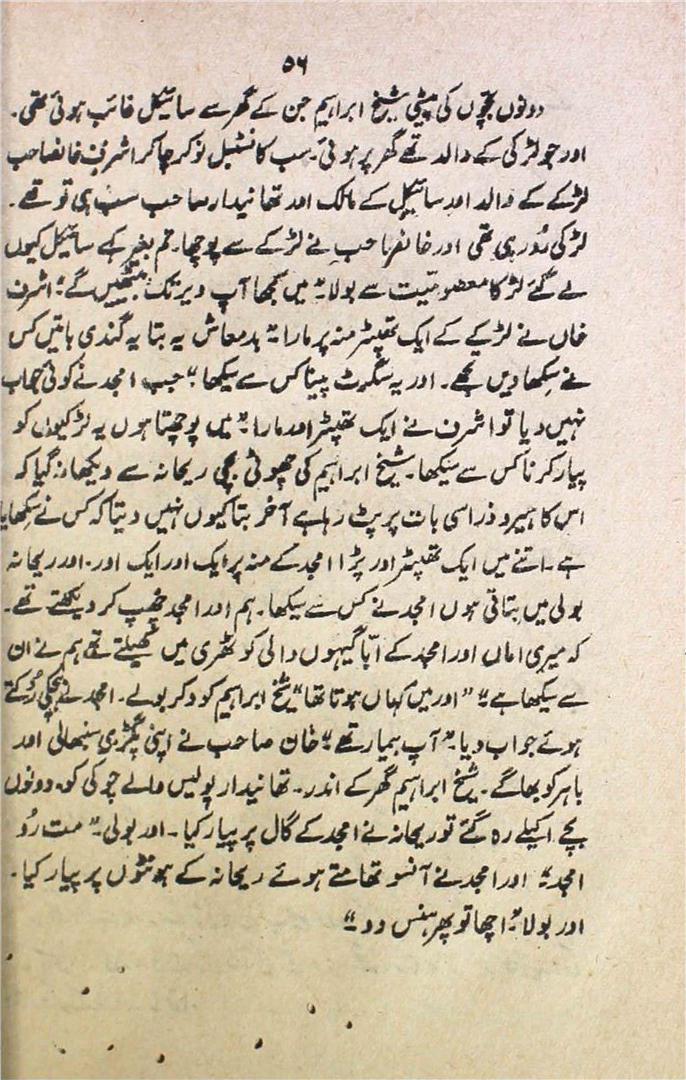 ۵۶
دونوں بچّوں کی پیٹی شیخ ابراہیم جن کے گھر سے سائیکل غائب ہوئی تھی۔
اور جو لڑکی کے والد تھے گھر پر ہوئی۔ سب کانسٹبل نوکر چاکر اشرف خانصاحب
لڑکے کے والد اور سائیکل کے مالک اور تھانیدار صاحب سب ہی تو تھے۔
لڑکی رُو رہی تھی اور خانصاحب نے لڑکے سے پوچھا۔ تم بغیر کہے سائیکل کیوں
لے گئے لڑکا معصومیّت سے بولا۔" میں سمجھا آپ دیر تک بیٹھیں گے" اشرف
خاں نے لڑکے کے ایک تھپڑ منہ پر مارا۔" بدمعاش یہ بتا یہ گندی باتیں کس
نے سکھا دیں تجھے۔ اور یہ سگرٹ پینا کس سے سیکھا" جب امجد نے کوئی جواب
نہیں دیا تو اشرف نے ایک تھپڑ اور مارا۔" میں پوچھتا ہوں یہ لڑکیوں کو
پیار کرنا کس سے سیکھا۔ شیخ ابراہیم کی چھوٹی بچی ریحانہ سے دیکھا نہ گیا کہ
اس کا ہیرو ذرا سی بات پر پٹ رہا ہے آخر بتا کیوں نہیں دیتا کہ کس نے سکھایا
ہے۔ اتنے میں ایک تھپڑ اور پڑا امجد کے منہ پر ایک اور ایک اور۔ اور ریحانہ
بولی میں بتاتی ہوں امجد نے کس سے سیکھا۔ ہم اور امجد چھپ کر دیکھتے تھے۔
کہ میری اماں اور امجد کے ابّا گیہوں والی کوٹھری میں کھیلتے تھے ہم نے ان
سے سیکھا ہے" "اور میں کہاں ہوتا تھا" شیخ ابراہیم کود کر بولے۔ امجد نے ہچکی رُوکتے
ہوئے جواب دیا۔" آپ بیمار تھے" خان صاحب نے اپنی پگڑی سنبھالی اور
باہر کو بھاگے۔ شیخ ابراہیم گھر کے اندر۔ تھانیدار پولیس والے چوکی کو۔ دونوں
بچے اکیلے رہ گئے تو ریحانہ نے امجد کے گال پر پیار کیا۔ اور بولی۔" مت رُو
امجد" اور امجد نے آنسو تھامتے ہوئے ریحانہ کے ہونٹوں پر پیار کیا۔
اور بولا۔" اچھا تو پھر ہنس دو"